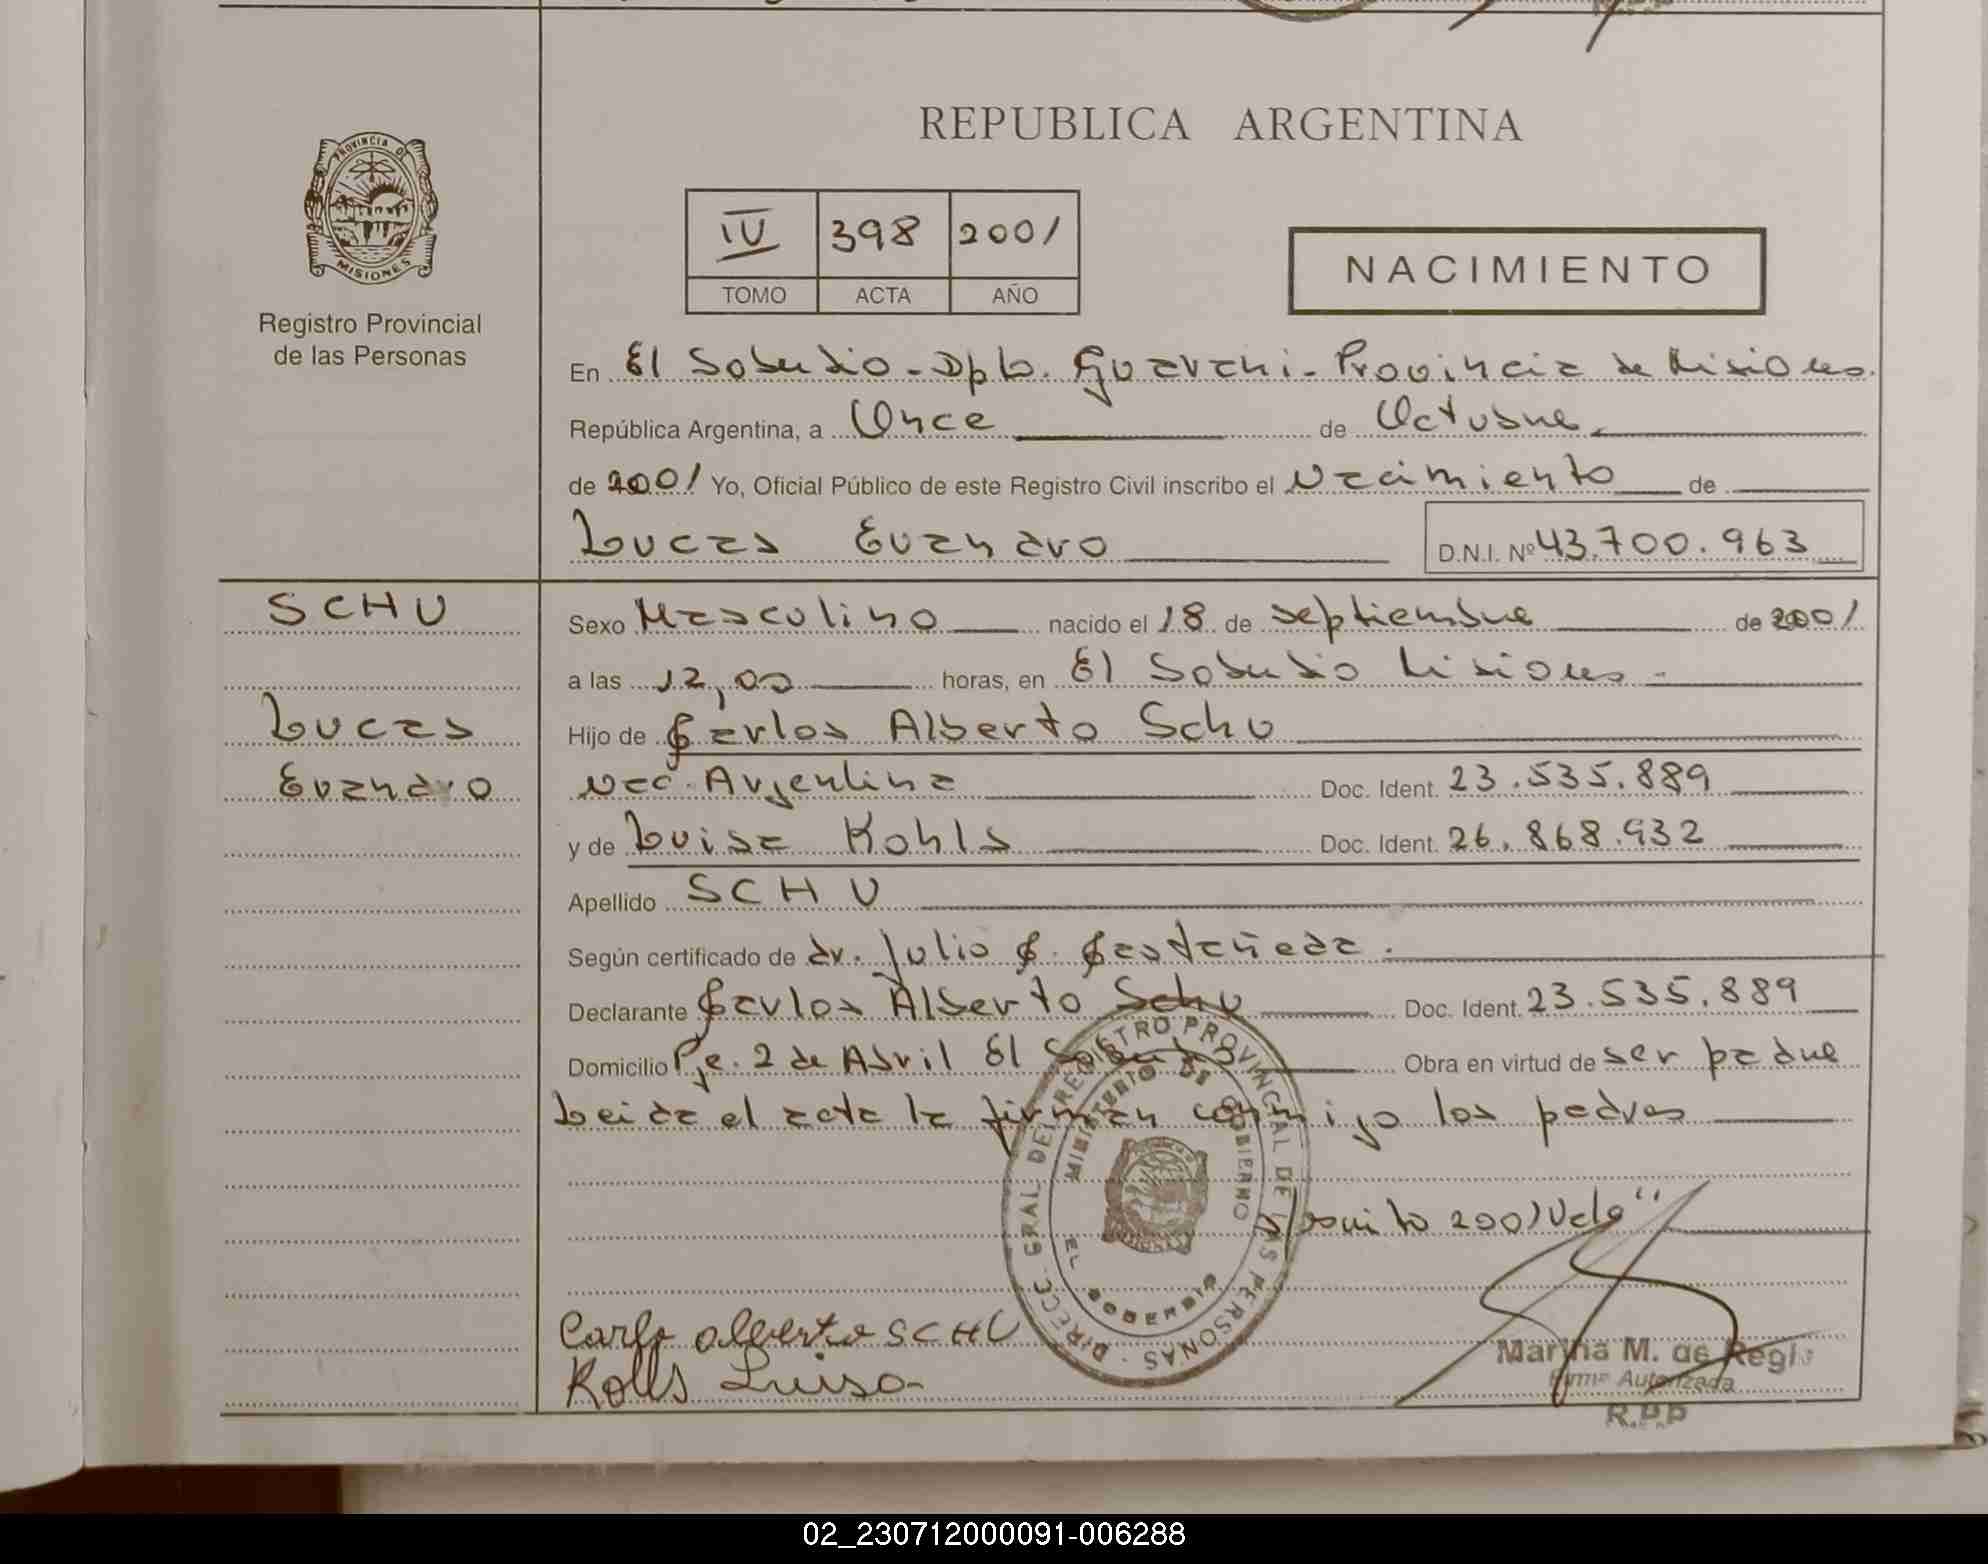 REPUBLICA ARGENTINA
PROVINCIA DE
MISIONES
Registro Provincial
de las Personas
IV 398 2001
TOMO ACTA AÑO
NACIMIENTO
En El Soberbio - Dpto. Guarani - Provincia de Misiones.
República Argentina, a Once de Octubre
de 2001 Yo, Oficial Público de este Registro Civil inscribo el Nacimiento de
Lucas Evandro D.N.I. Nº 43.700.963
SCHU
Lucas
Evandro
Sexo Masculino nacido el 18 de septiembre de 2001
a las 12,00 horas, en El Soberbio Misiones -
Hijo de Carlos Alberto Schu
Nac. Argentina Doc. Ident. 23.535.889
y de Luisa Kohls Doc. Ident. 26.868.932
Apellido SCHU
Según certificado de dr. Julio C. Castañeda.
Declarante Carlos Alberto Schu Doc. Ident. 23.535.889
Domicilio Pje. 2 de Abril El Soberbio Obra en virtud de ser padre
Leida el acta la firman conmigo los padres
2001 Vale"
DIRECC. GRAL DEL REGISTRO PROVINCIAL DE LAS PERSONAS
MINISTERIO DE GOBIERNO
EL SOBERBIO
Carlos alberto SCHU
Kolls Luisa
Martha M. de Regis
Firma Autorizada
R.P.P
02_230712000091-006288